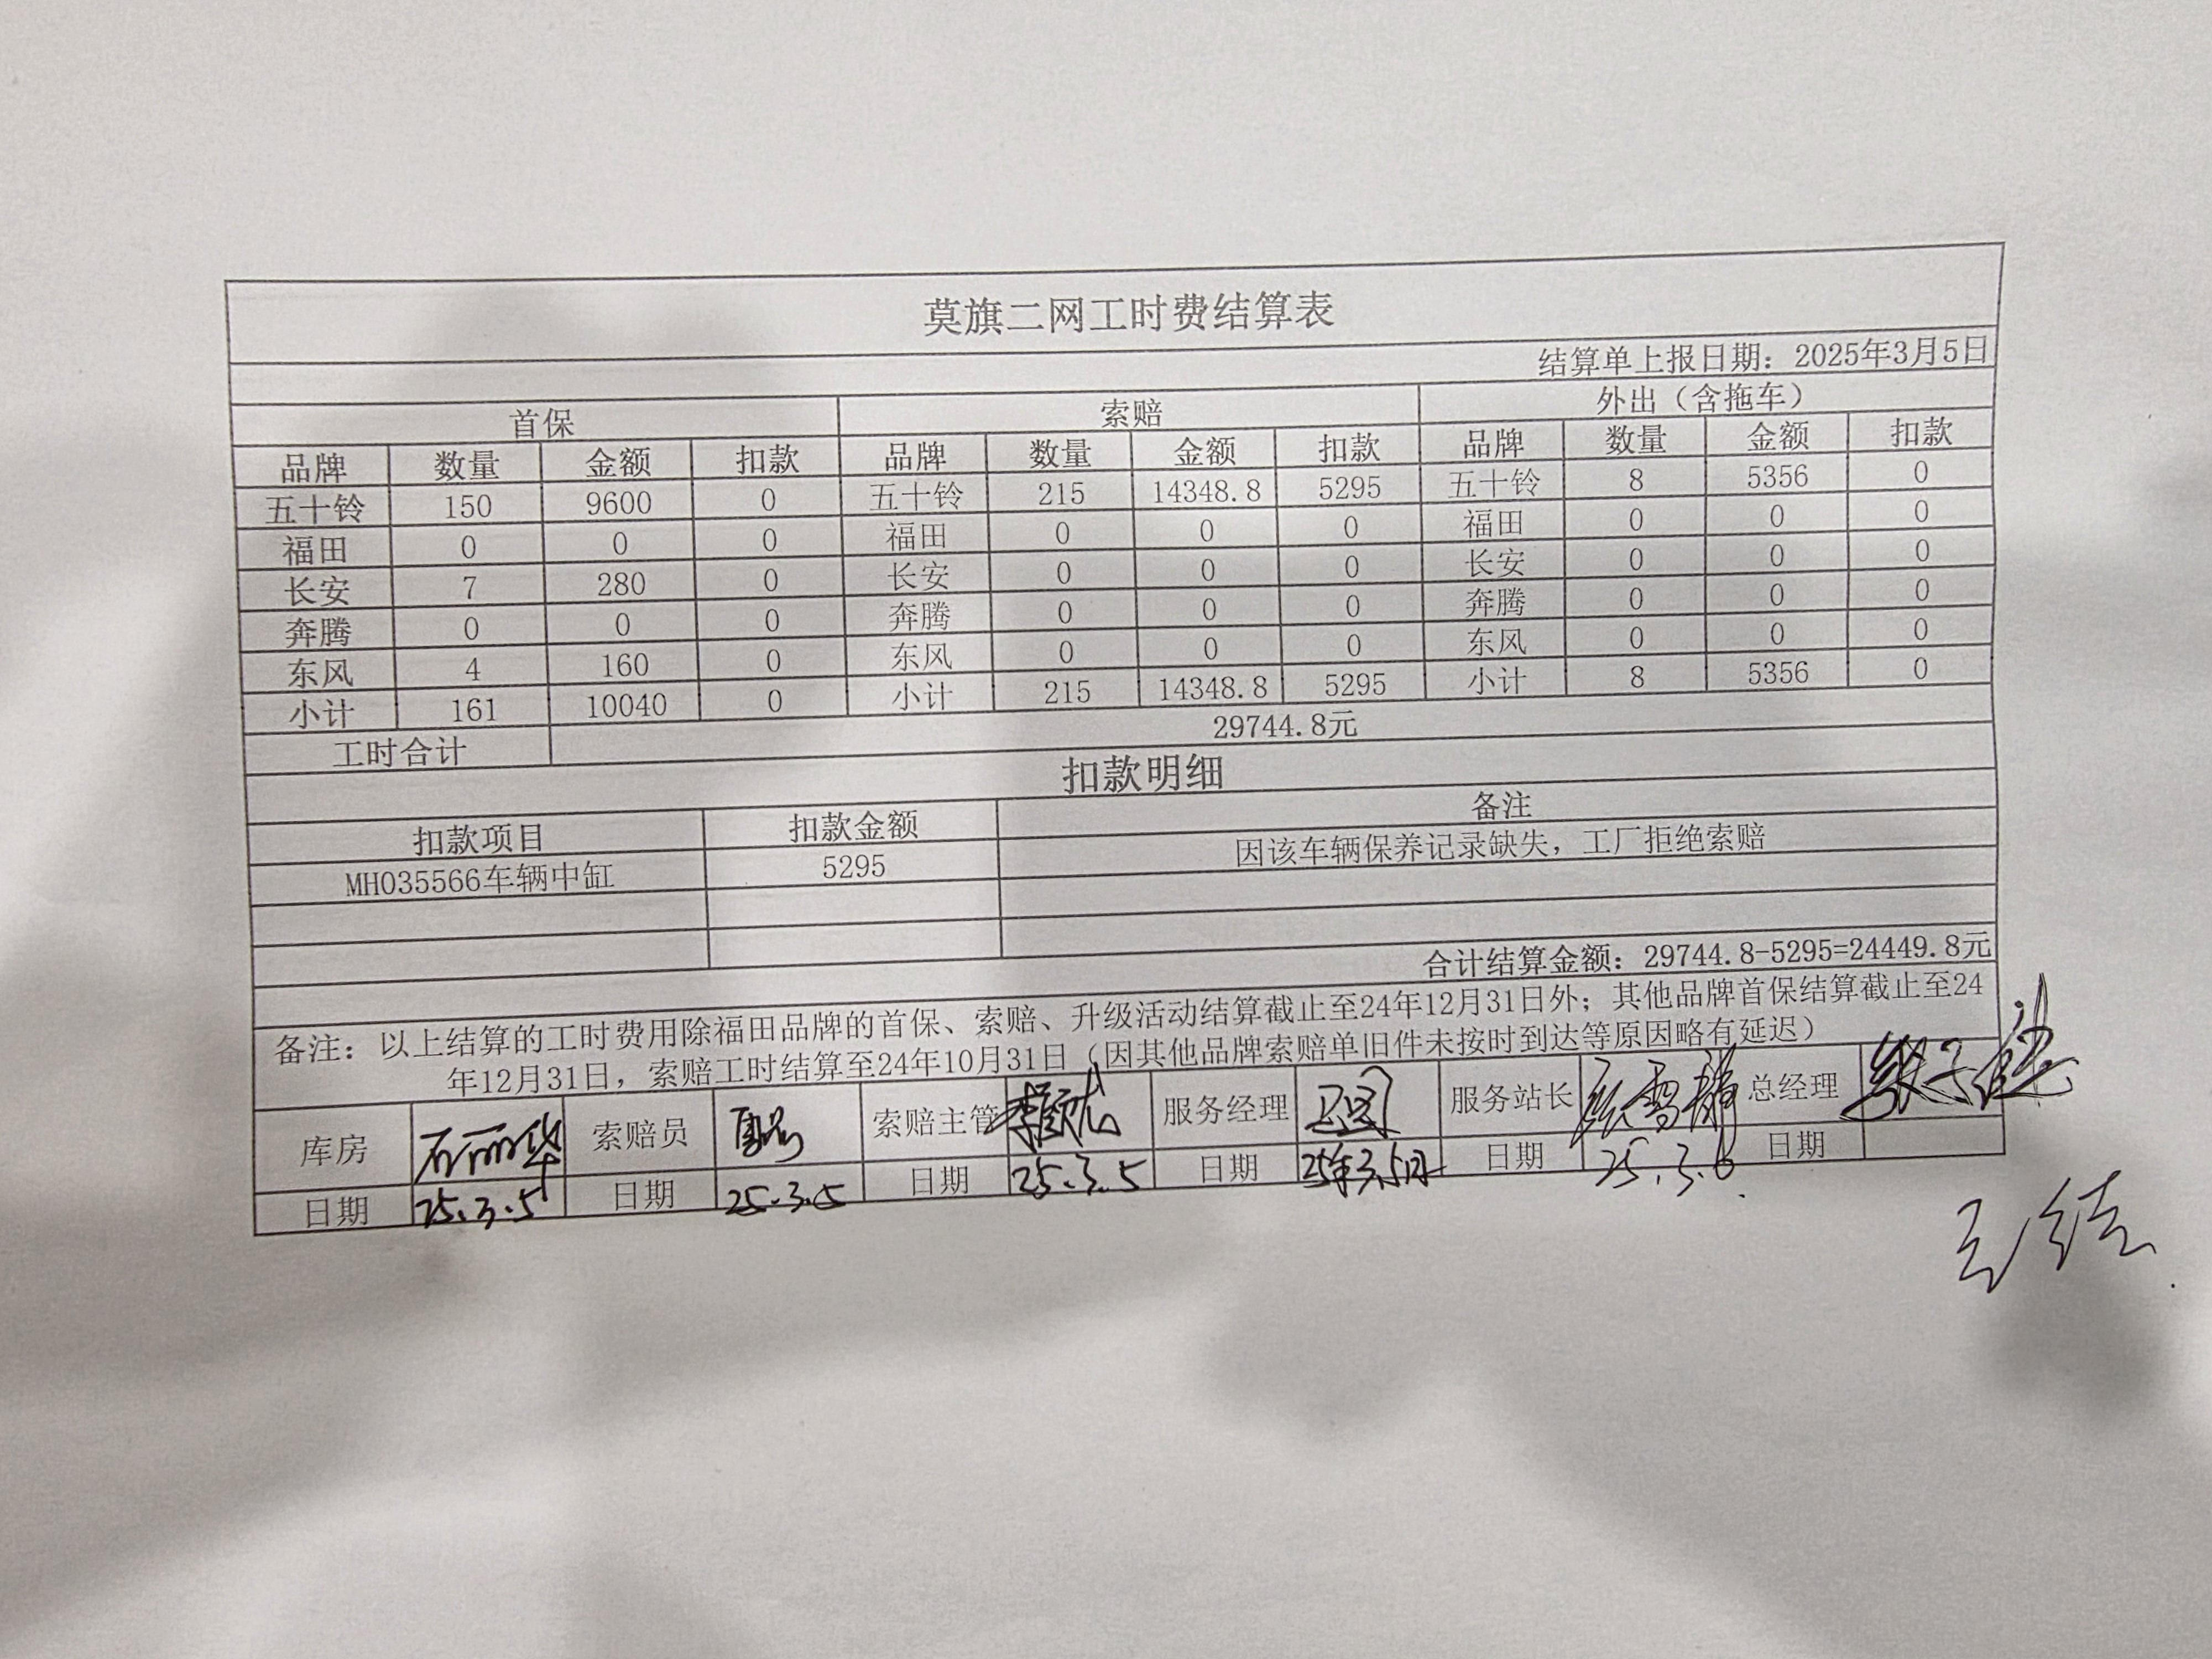 莫旗二网工时费结算表
结算单上报日期：2025年3月5日
首保 索赔 外出（含拖车）
品牌 数量 金额 扣款 品牌 数量 金额 扣款 品牌 数量 金额 扣款
五十铃 150 9600 0 五十铃 215 14348.8 5295 五十铃 8 5356 0
福田 0 0 0 福田 0 0 0 福田 0 0 0
长安 7 280 0 长安 0 0 0 长安 0 0 0
奔腾 0 0 0 奔腾 0 0 0 奔腾 0 0 0
东风 4 160 0 东风 0 0 0 东风 0 0 0
小计 161 10040 0 小计 215 14348.8 5295 小计 8 5356 0
工时合计 29744.8元
扣款明细
扣款项目 扣款金额 备注
MH035566车辆中缸 5295 因该车辆保养记录缺失，工厂拒绝索赔
合计结算金额：29744.8-5295=24449.8元
备注：以上结算的工时费用除福田品牌的首保、索赔、升级活动结算截止至24年12月31日外；其他品牌首保结算截止至24
年12月31日，索赔工时结算至24年10月31日（因其他品牌索赔单旧件未按时到达等原因略有延迟）
库房 石丽华 索赔员 索赔主管 服务经理 服务站长 总经理
日期 25.3.5 日期 25.3.5 日期 25.3.5 日期 25年3.5日 日期 25.3.6. 日期
已结